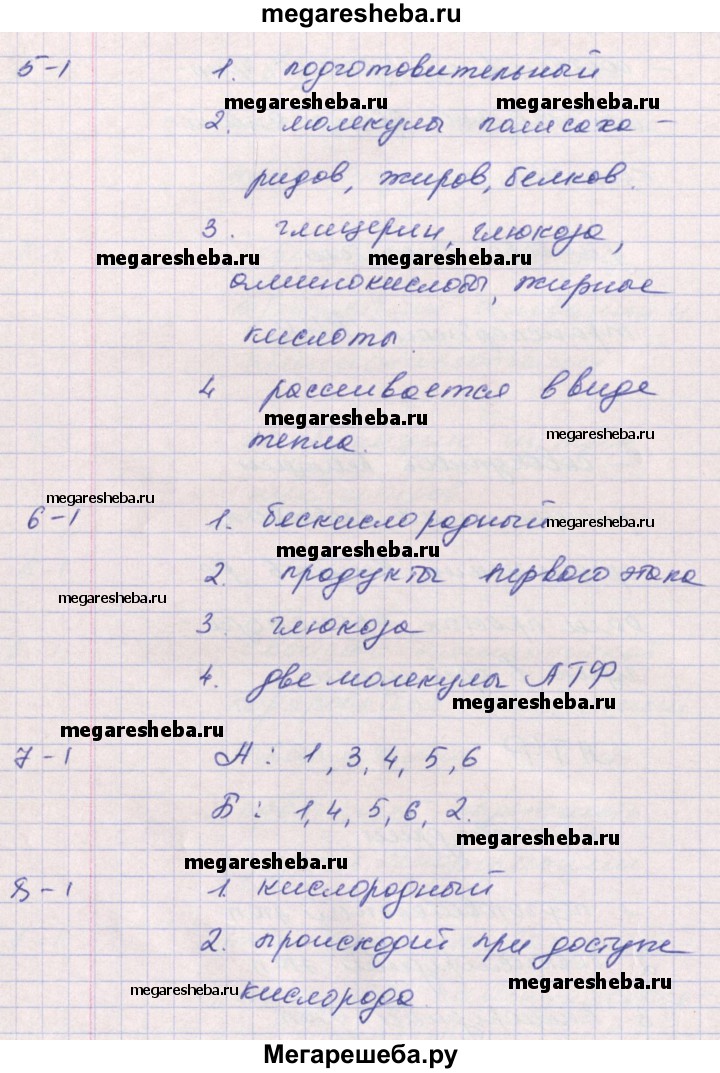 megaresheba.ru
5-1 1. подготовительный
megaresheba.ru megaresheba.ru
2. молекулы полисаха-
ридов, жиров, белков.
3. глицерин, глюкоза,
megaresheba.ru megaresheba.ru
аминокислоты, жирные
кислоты.
4 рассеивается в виде
megaresheba.ru megaresheba.ru
тепла.
megaresheba.ru
6-1 1. бескислородный megaresheba.ru
megaresheba.ru
2. продукты первого этапа
megaresheba.ru
3. глюкоза
4. две молекулы АТФ
megaresheba.ru
megaresheba.ru
7-1 А: 1, 3, 4, 5, 6
Б: 1, 4, 5, 6, 2.
megaresheba.ru
megaresheba.ru
8-1 1. кислородный
2. происходит при доступе
megaresheba.ru кислорода. megaresheba.ru
Мегарешеба.ру